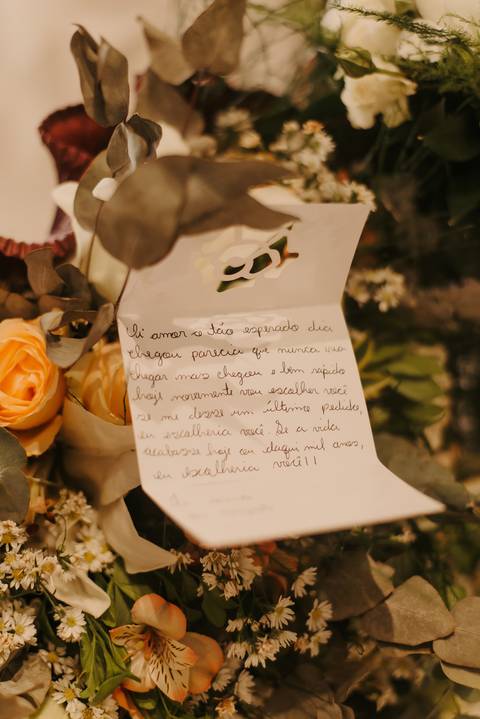 Oi amor o tão esperado dia
chegou parecia que nunca ia
chegar mais chegou e bem rápido
hoje novamente vou escolher você
se me desse um último pedido,
eu escolheria você. Se a vida
acabasse hoje ou daqui mil anos,
eu escolheria você!!